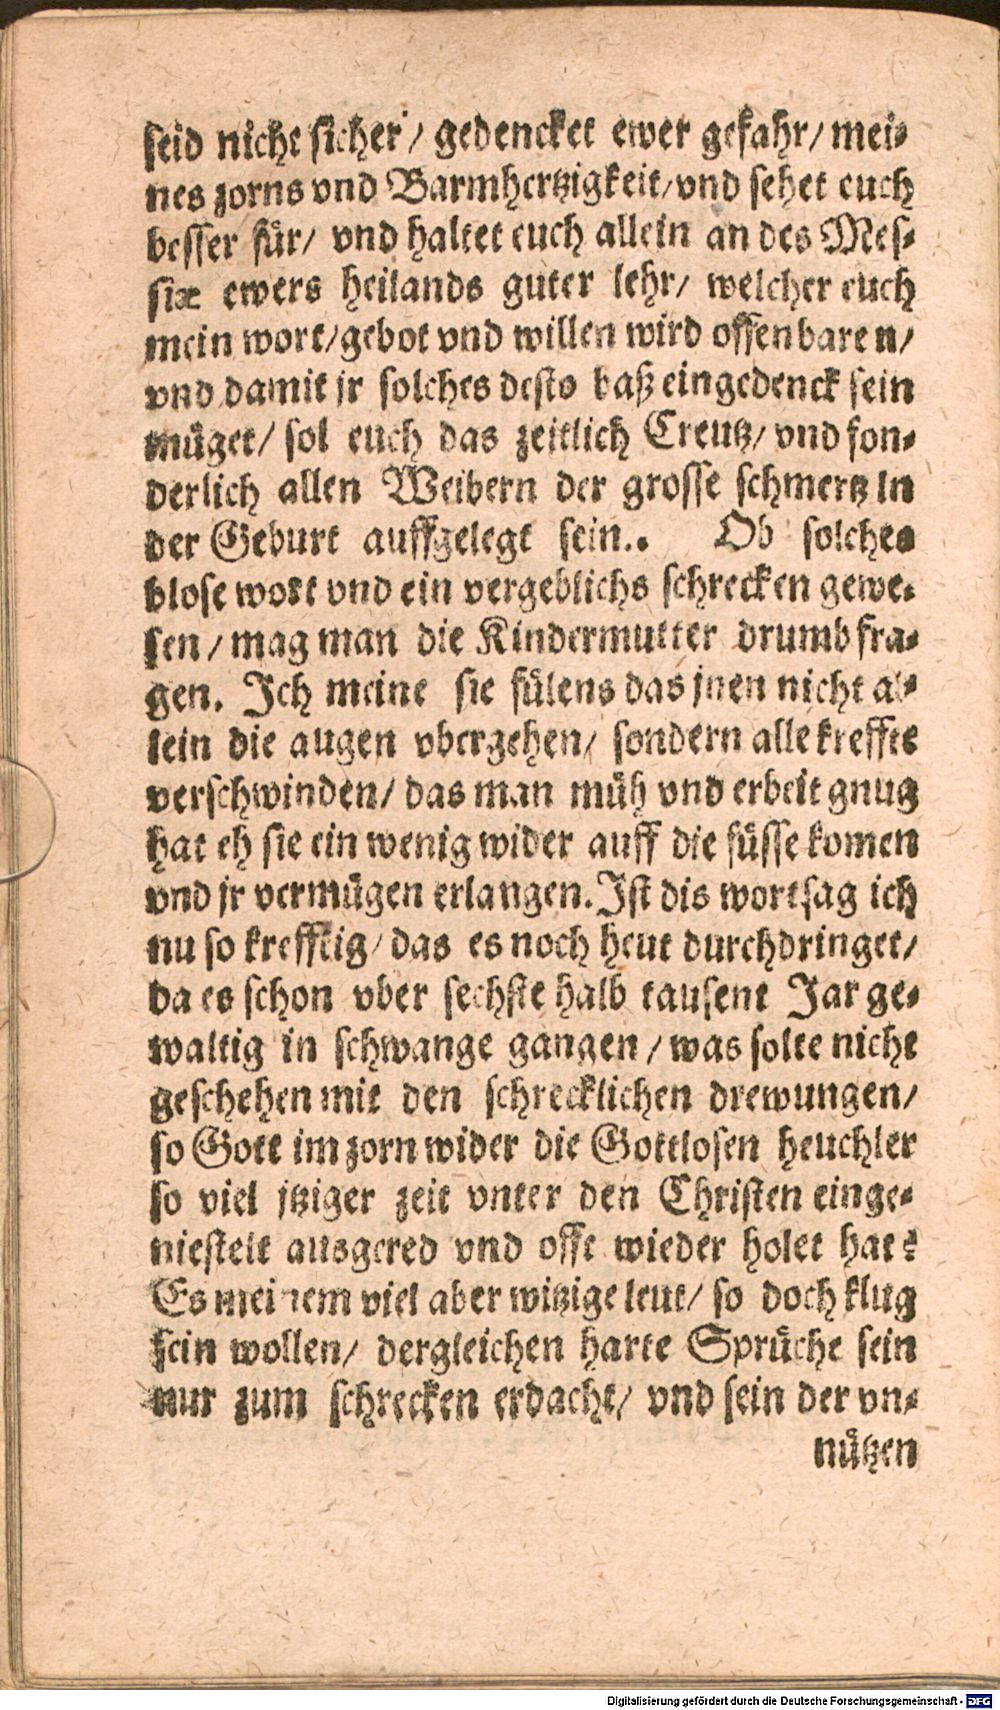 seid nicht sicher / gedencket ewer gefahr / mei-
nes zorns vnd Barmhertzigkeit / vnd sehet euch
besser für / vnd haltet euch allein an des Mes-
siæ ewers heilands guter lehr / welcher euch
mein wort / gebot vnd willen wird offenbaren /
vnd damit jr solches desto baß eingedenck sein
müget / sol euch das zeitlich Creutz / vnd son-
derlich allen Weibern der grosse schmertz in
der Geburt auffgelegt sein.. Ob solches
blose wort vnd ein vergeblichs schrecken gewe-
sen / mag man die Kindermutter drumb fra-
gen. Ich meine sie fülens das jnen nicht al-
lein die augen vbergehen / sondern alle kreffte
verschwinden / das man müh vnd erbeit gnug
hat eh sie ein wenig wider auff die füsse komen
vnd jr vermügen erlangen. Ist dis wort sag ich
nu so krefftig / das es noch heut durchdringet /
da es schon vber sechste halb tausent Jar ge-
waltig in schwange gangen / was solte nicht
geschehen mit den schrecklichen drewungen /
so Gott im zorn wider die Gottlosen heuchler
so viel jtziger zeit vnter den Christen einge-
niestelt ausgered vnd offt wieder holet hat?
Es meinem viel aber witzige leut / so doch klug
sein wollen / dergleichen harte Sprüche sein
nur zum schrecken erdacht / vnd sein der vn-
nützen
Digitalisierung gefördert durch die Deutsche Forschungsgemeinschaft - DFG